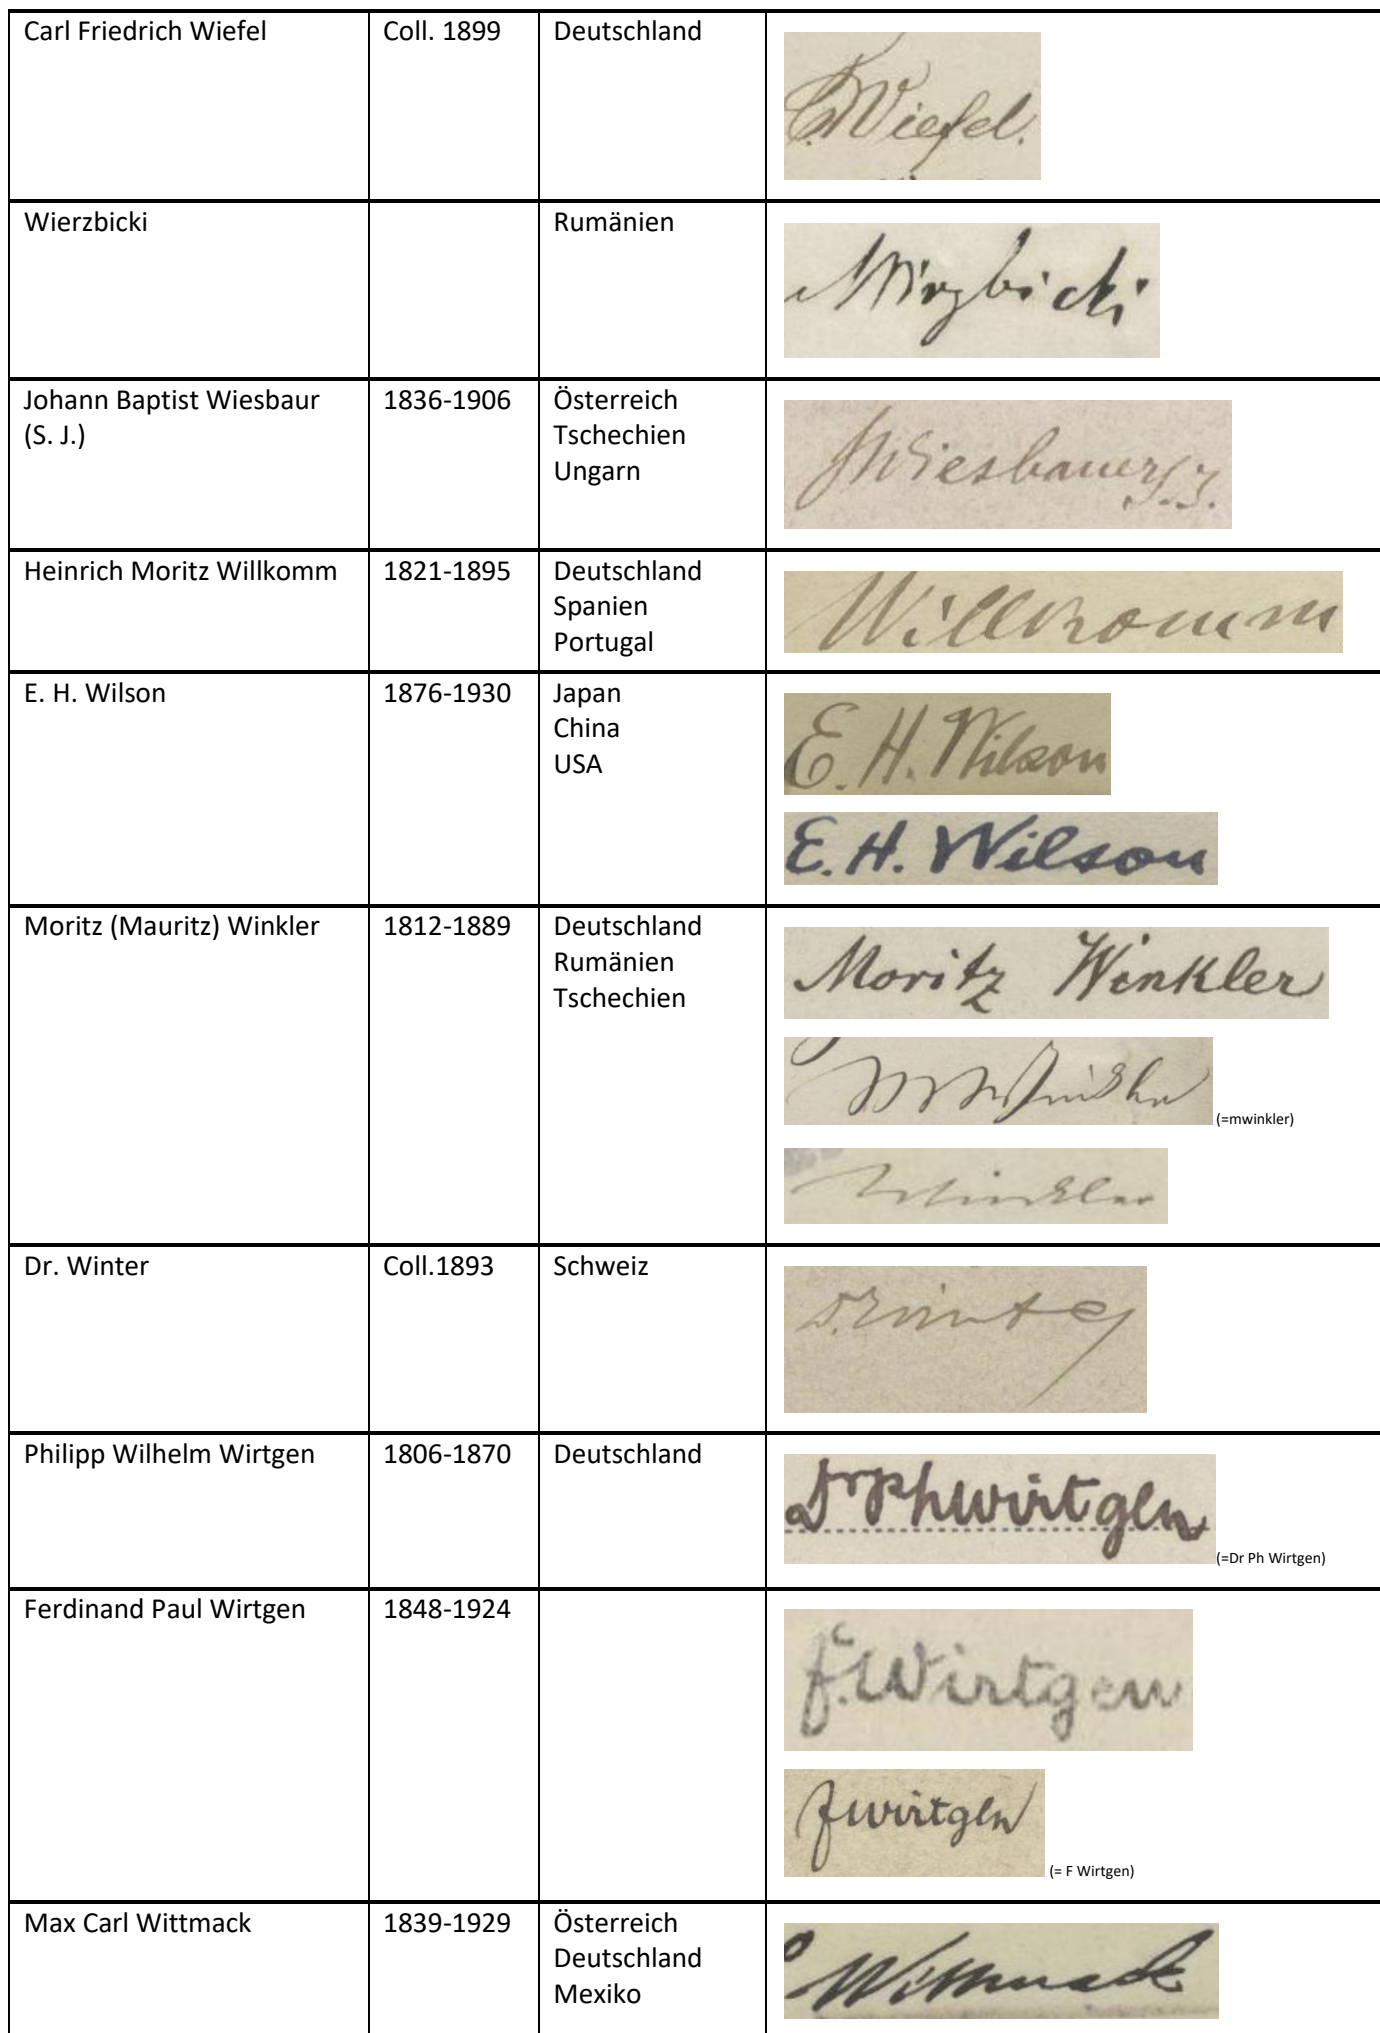 Carl Friedrich Wiefel
Coll. 1899
Deutschland
C. Wiefel.
Wierzbicki
Rumänien
Wirzbicki
Johann Baptist Wiesbaur
(S. J.)
1836-1906
Österreich
Tschechien
Ungarn
JWiesbauer S. J.
Heinrich Moritz Willkomm
1821-1895
Deutschland
Spanien
Portugal
Willkomm
E. H. Wilson
1876-1930
Japan
China
USA
E. H. Wilson
E. H. Wilson
Moritz (Mauritz) Winkler
1812-1889
Deutschland
Rumänien
Tschechien
Moritz Winkler
MWinkler
(=mwinkler)
Winkler
Dr. Winter
Coll.1893
Schweiz
D. Winter
Philipp Wilhelm Wirtgen
1806-1870
Deutschland
Dr Ph Wirtgen
(=Dr Ph Wirtgen)
Ferdinand Paul Wirtgen
1848-1924
F. Wirtgen
F Wirtgen
(= F Wirtgen)
Max Carl Wittmack
1839-1929
Österreich
Deutschland
Mexiko
Wittmack